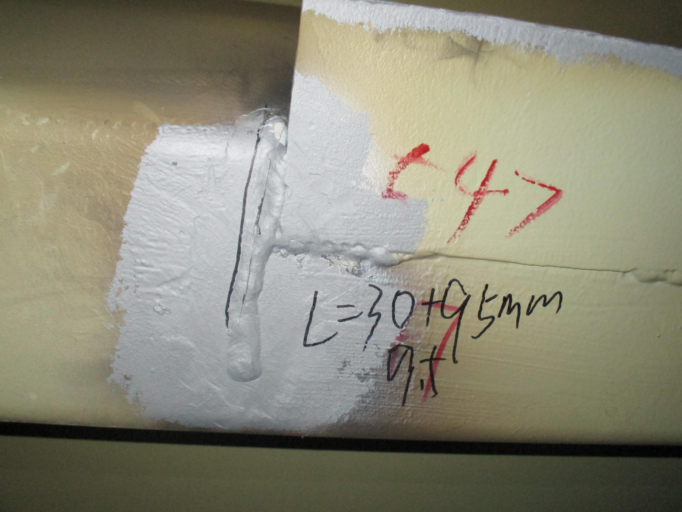 C47
L=30+95mm
9.t